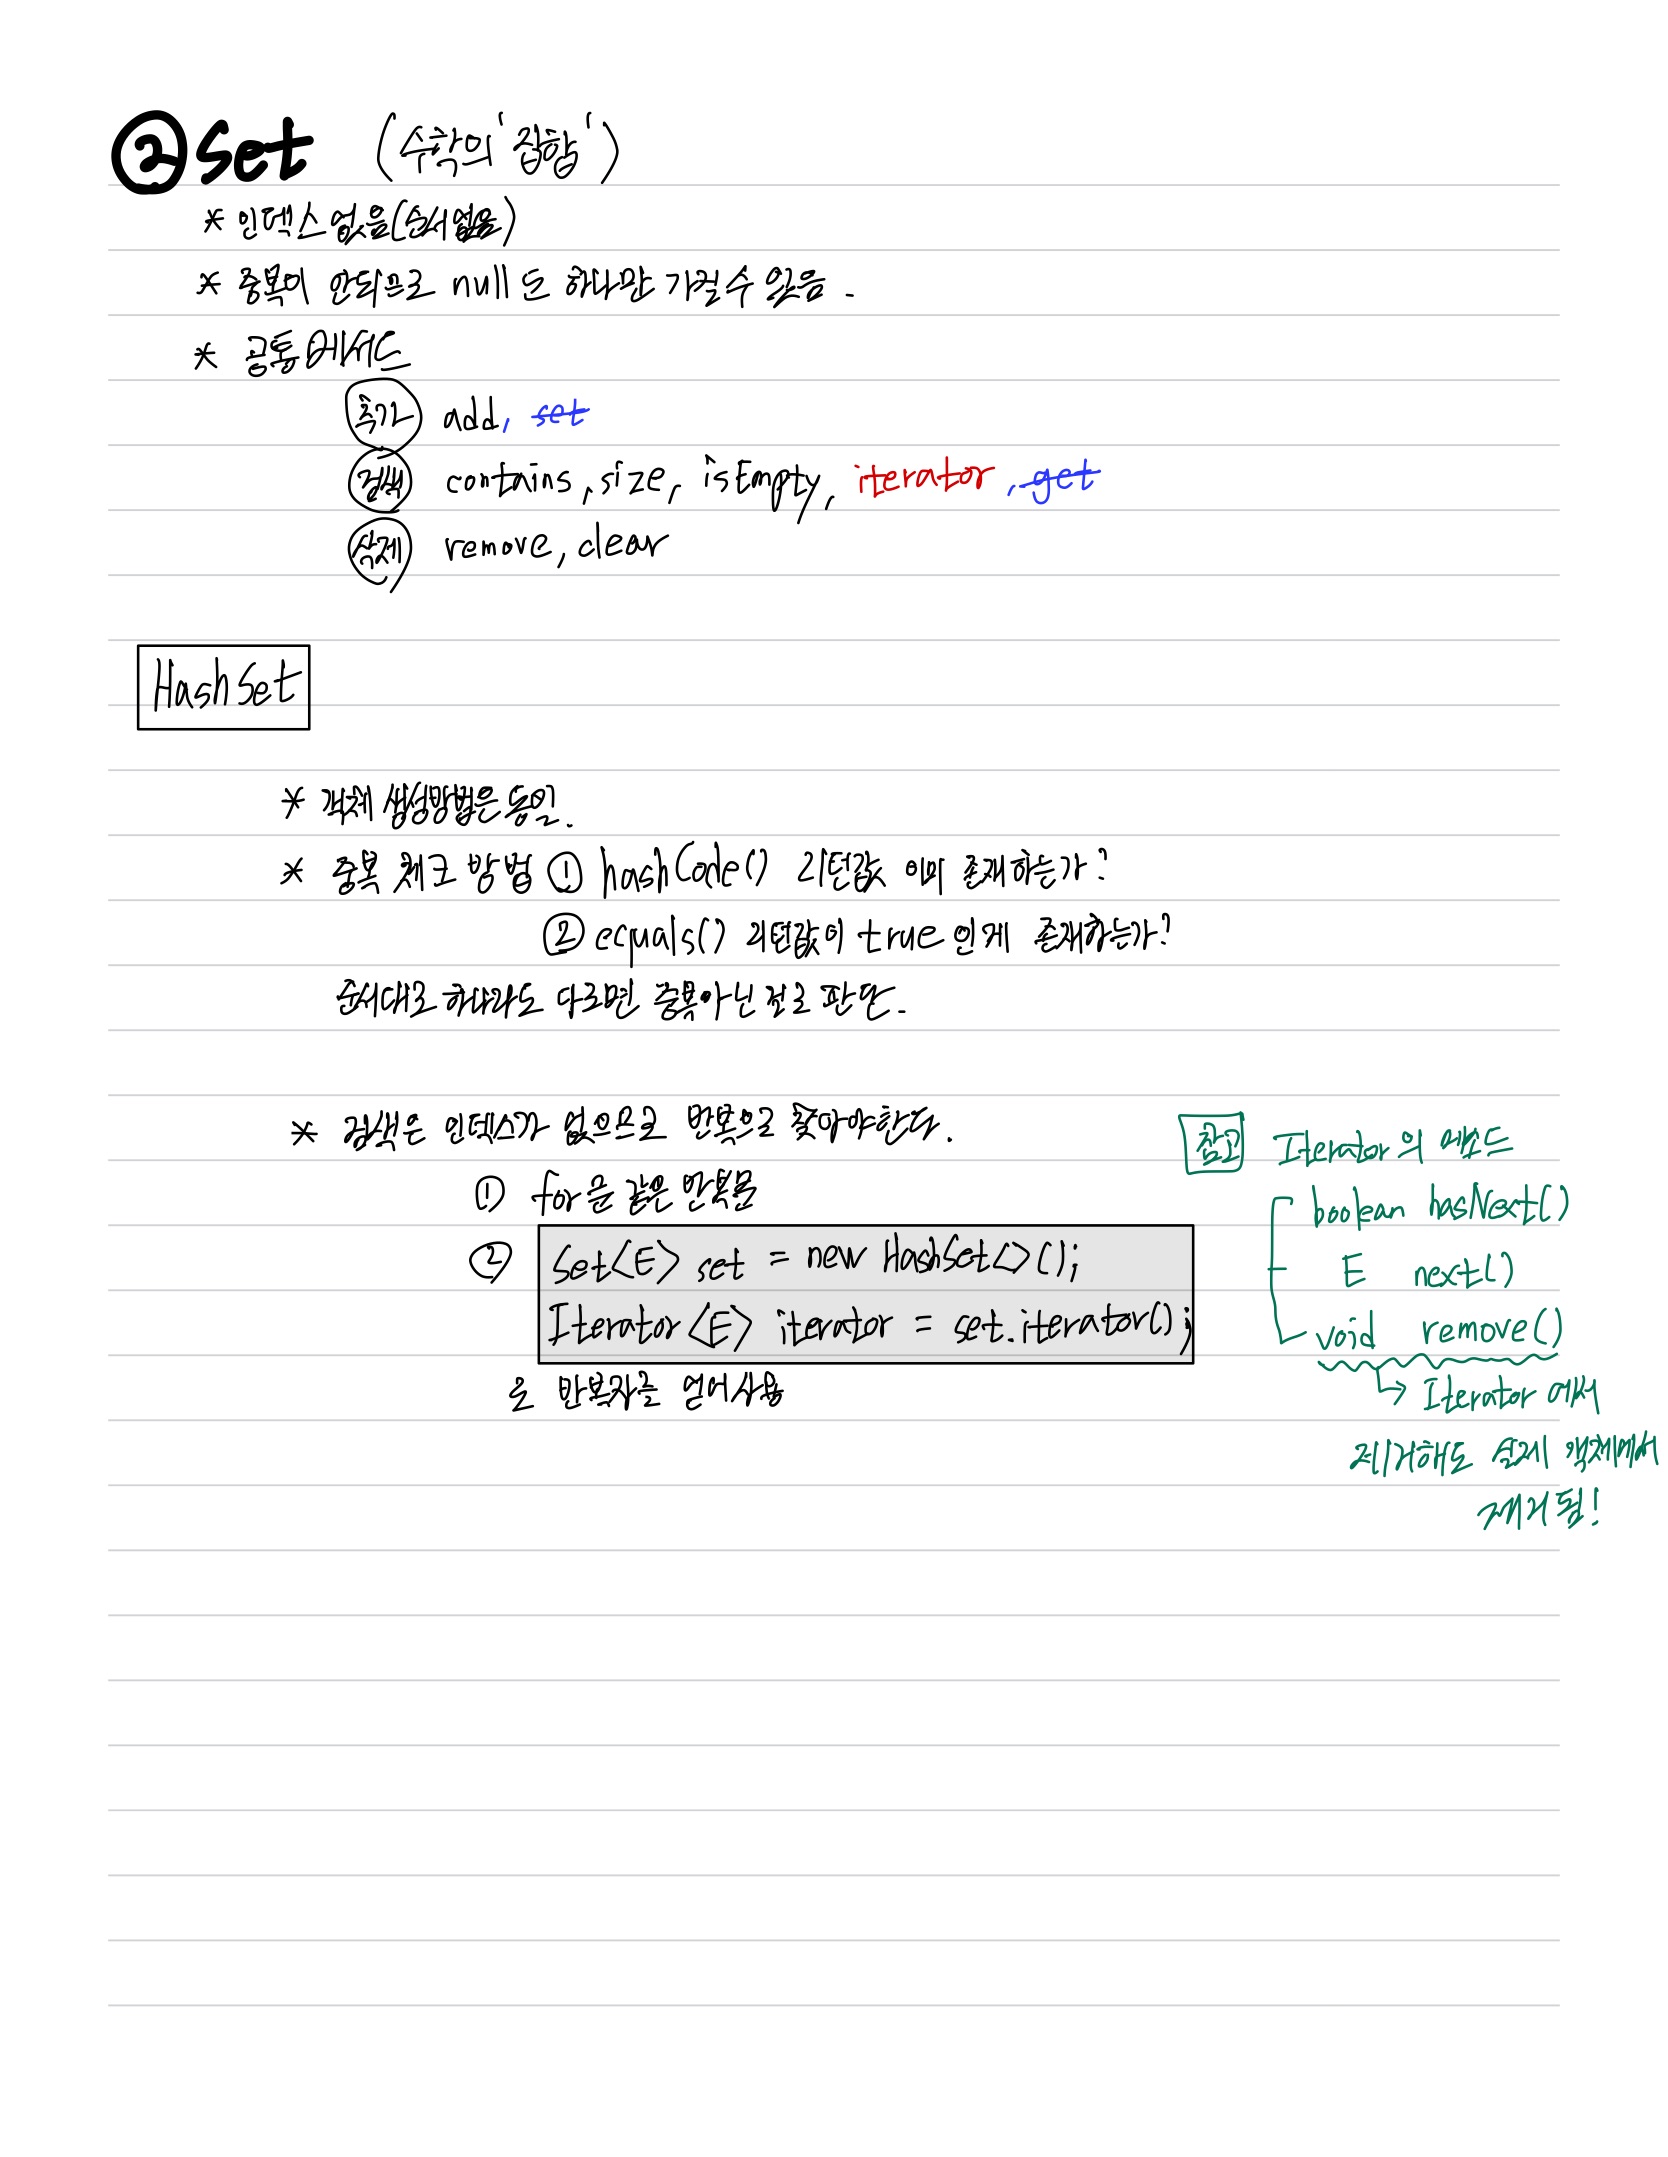 ② Set (수학의 '집합')
* 인덱스 없음(순서 없음)
* 중복이 안되므로 null도 하나만 가질 수 있음.
* 공통 메서드
추가 add, set
검색 contains, size, isEmpty, iterator, get
삭제 remove, clear
HashSet
* 객체 생성방법은 동일.
* 중복 체크 방법 ① hashCode() 리턴값 이미 존재하는가?
② equals() 리턴값이 true인게 존재하는가?
순서대로 하나라도 다르면 중복아닌 걸로 판단.
* 검색은 인덱스가 없으므로 반복으로 찾아야한다.
① for문 같은 반복문
② Set<E> set = new HashSet<>();
Iterator<E> iterator = set.iterator();
로 반복자를 얻어 사용
참고 Iterator의 메소드
boolean hasNext()
E next()
void remove()
→ Iterator에서
제거해도 실제 객체에서
제거됨!